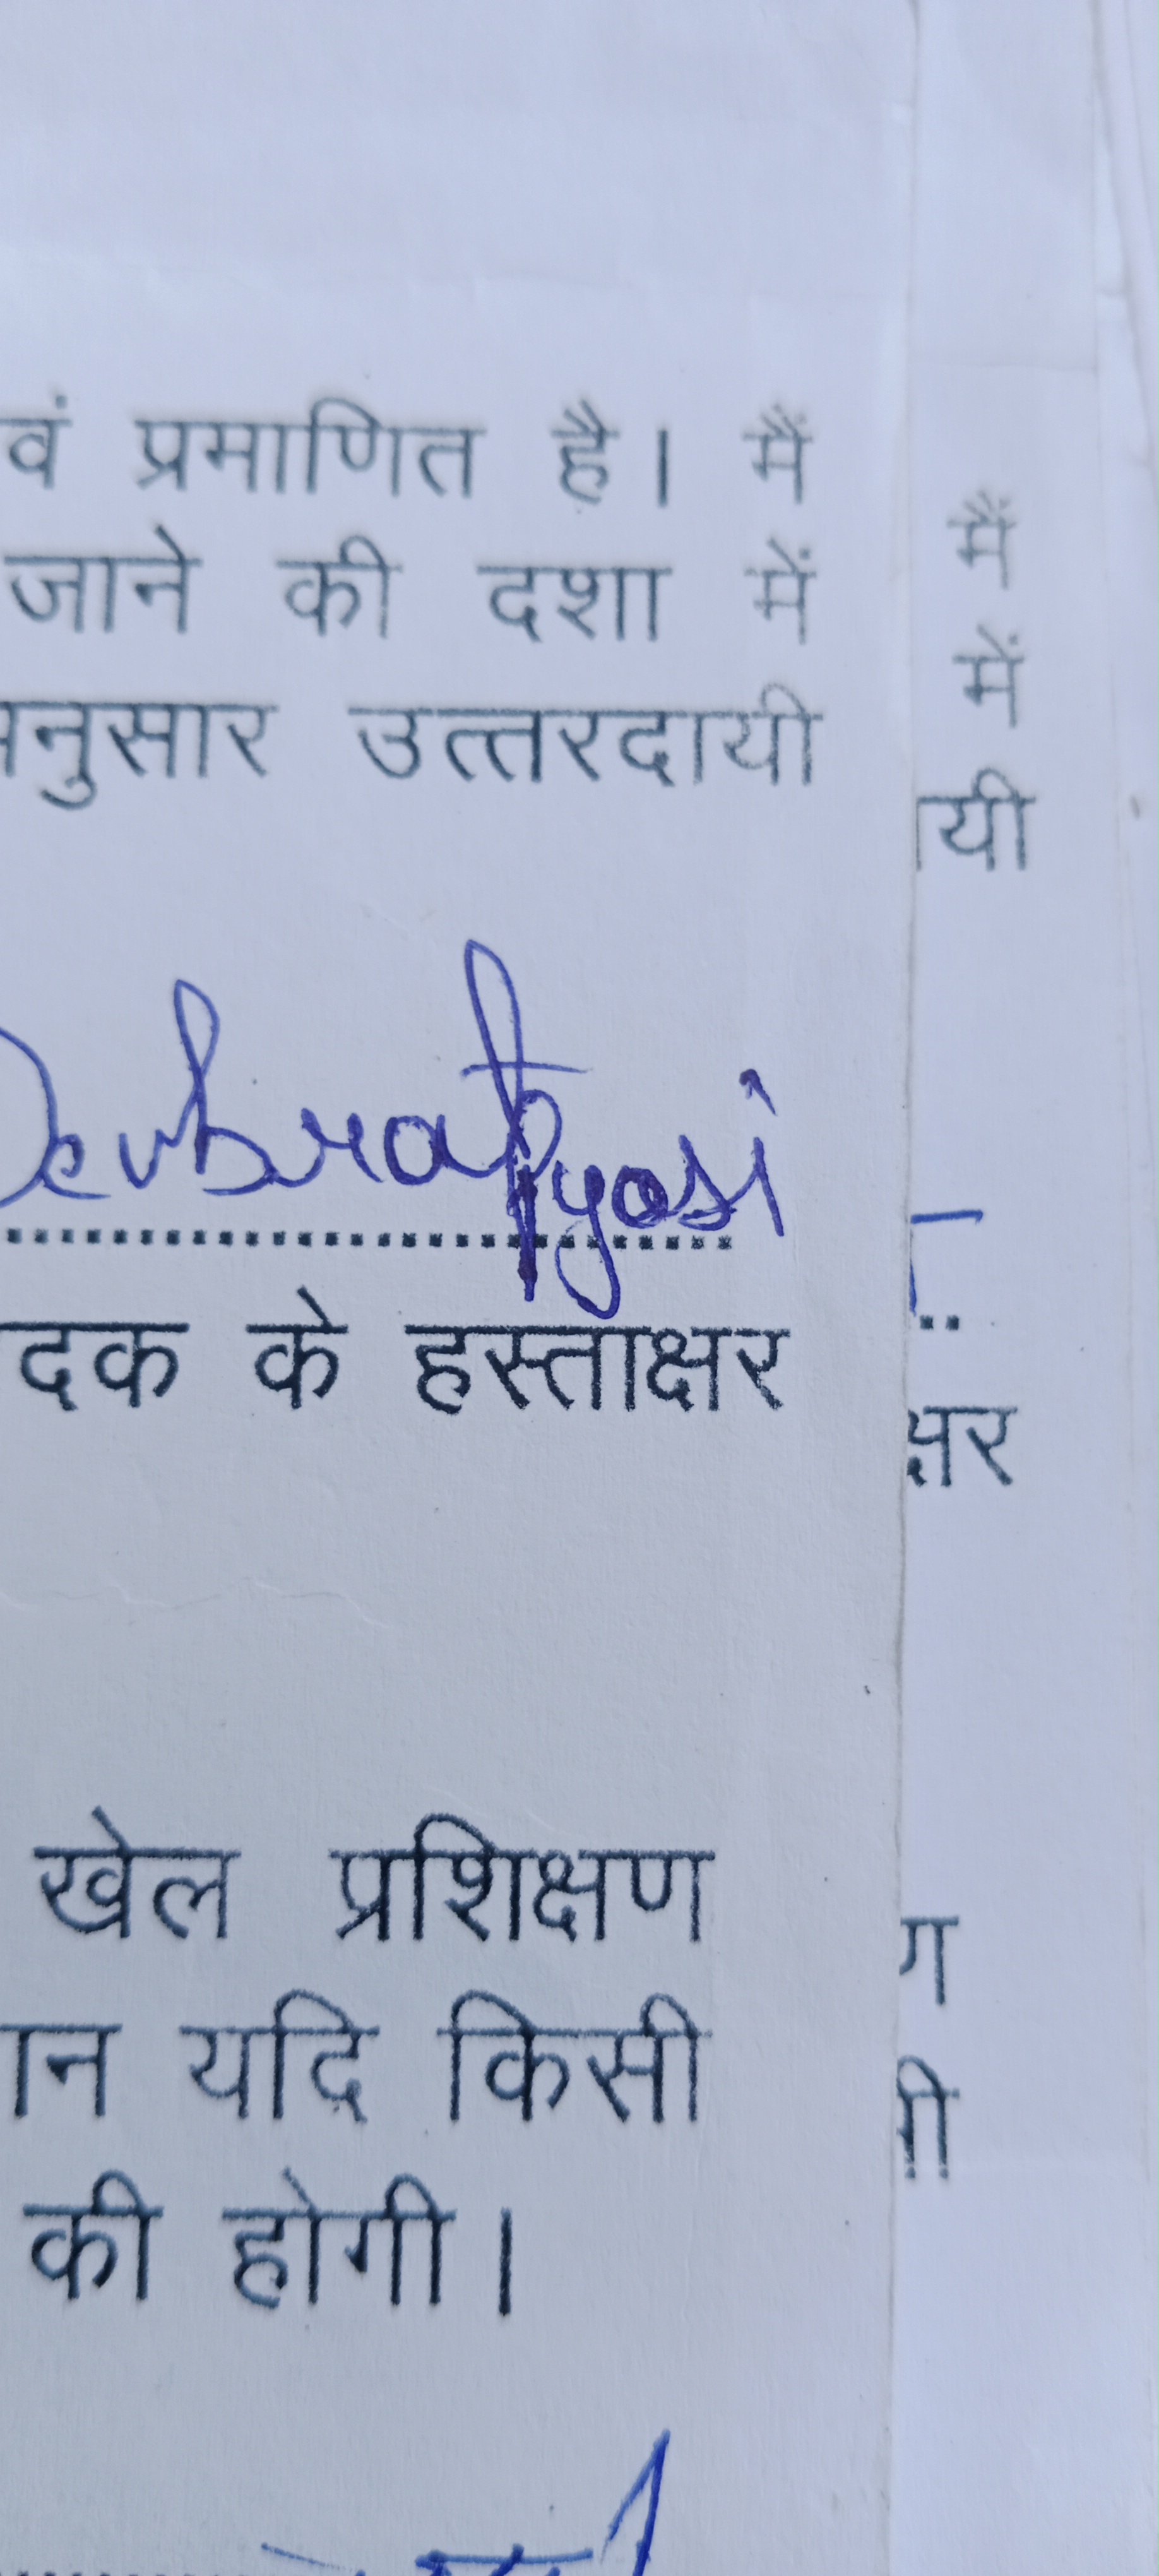 वं प्रमाणित है। मैं
जाने की दशा में
नुसार उत्तरदायी
दक के हस्ताक्षर
खेल प्रशिक्षण
ान यदि किसी
की होगी।
मैं
में
ायी
क्षर